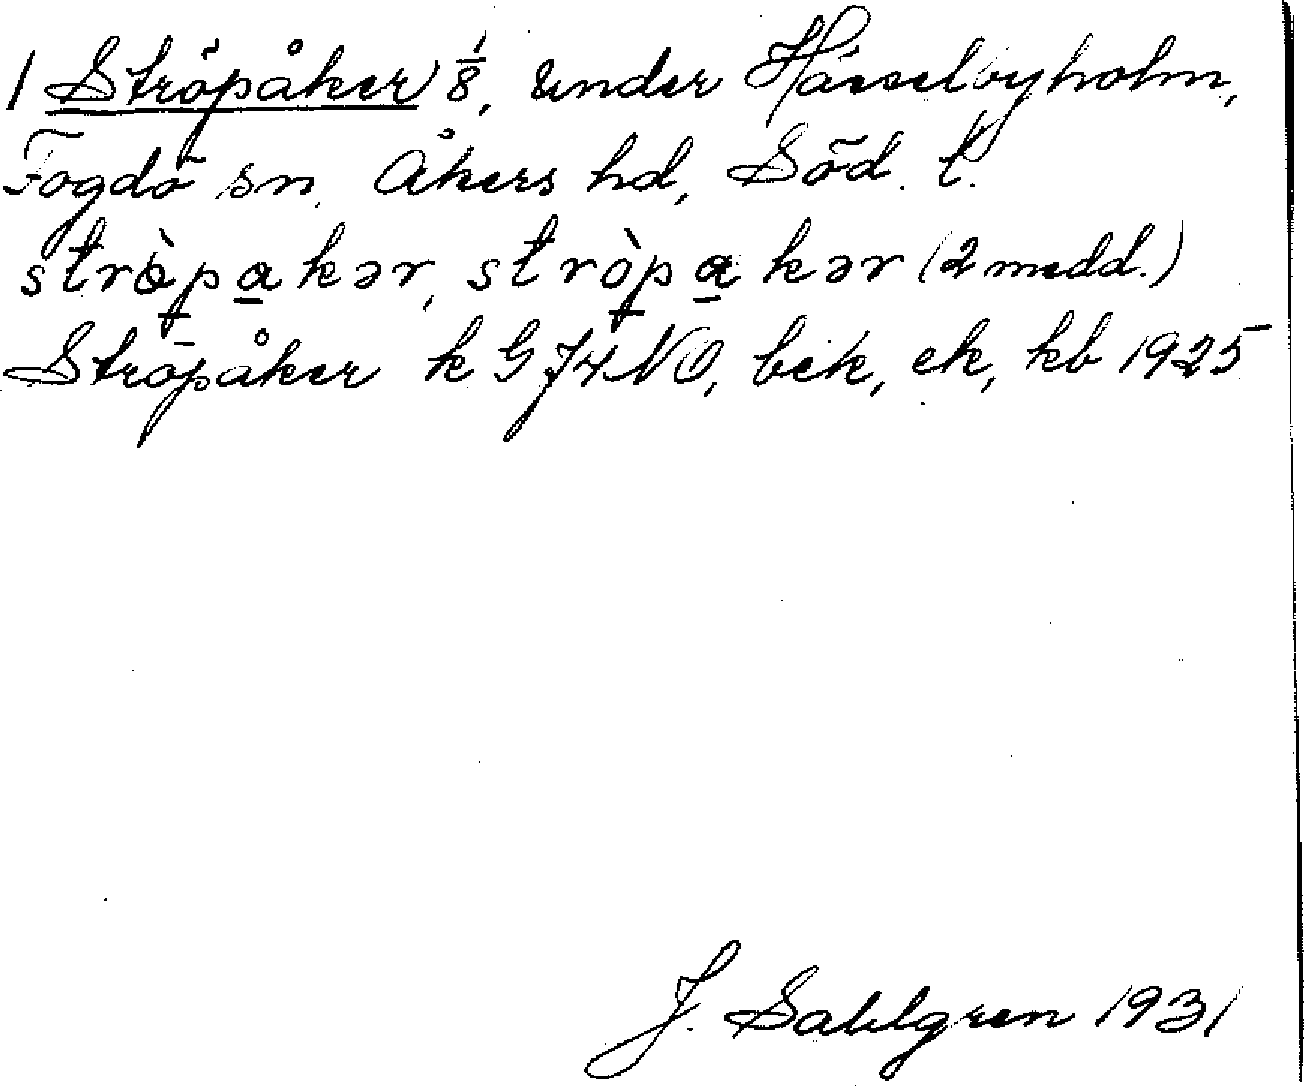 1 Ströpåker 1/8, under Hässelbyholm,
Fogdö sn, Åkers hd, Söd. l.
strö̀pa̲kər, strò̀pa̲kər (2 medd.)
Ströpåker k G J4 NO, bek, ek, kb 1925
J. Sahlgren 1931